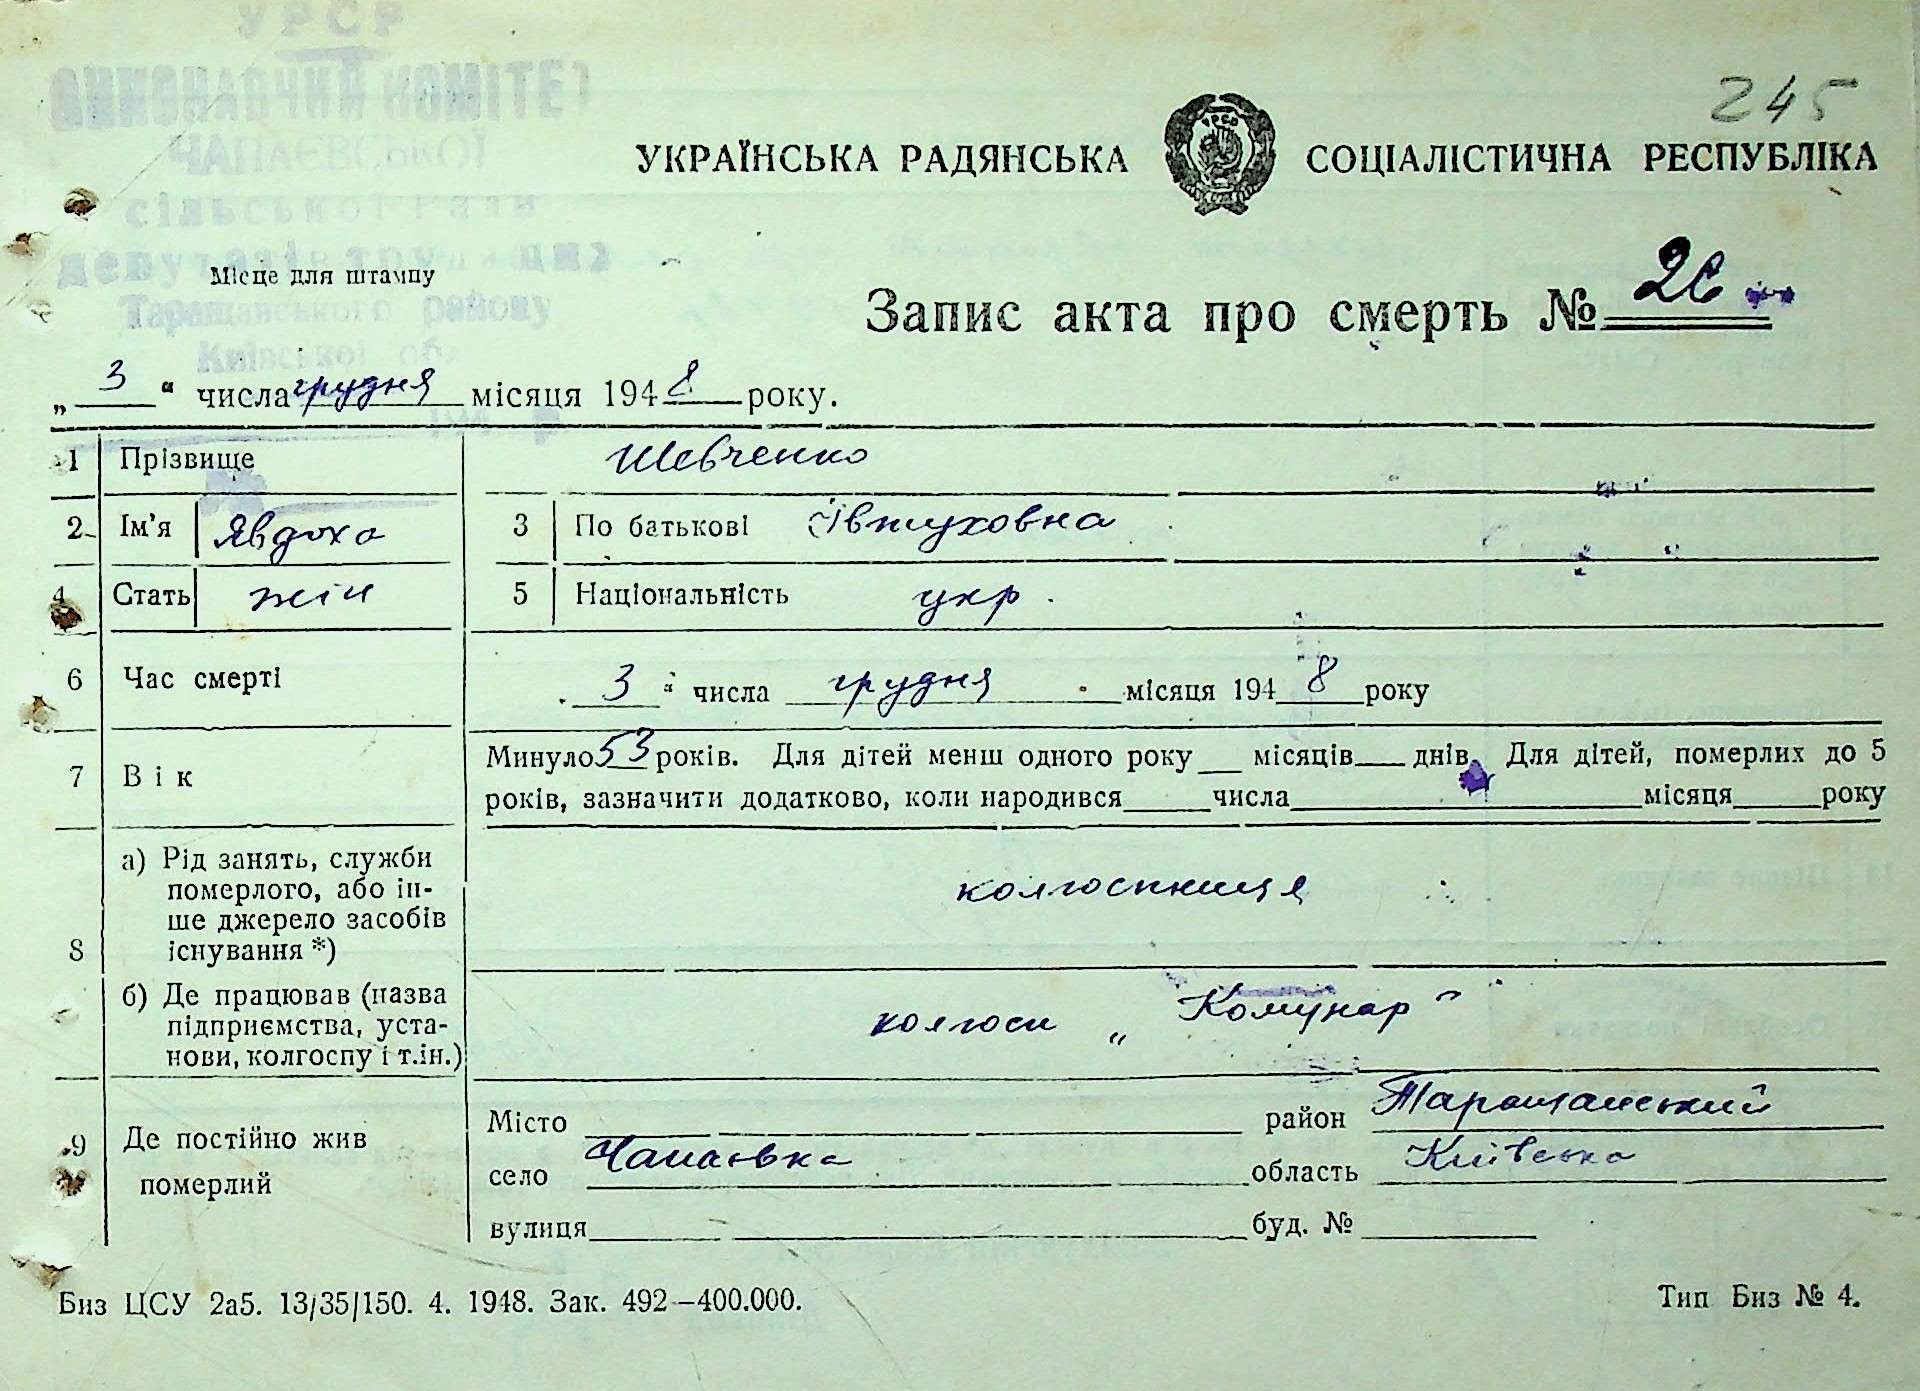 УРСР
ВИКОНАВЧИЙ КОМІТЕТ
ЧАПАЄВСЬКОЇ
сільської Ради
депутатів трудящих
Таращанського району
Київської обл
245
УКРАЇНСЬКА РАДЯНСЬКА СОЦІАЛІСТИЧНА РЕСПУБЛІКА
Місце для штампу
Запис акта про смерть № 26
„ 3 “ числа грудня місяця 1948 року.
1 Прізвище Шевченко
2 Ім'я Явдоха 3 По батькові Явтуховна
4 Стать жін 5 Національність укр.
6 Час смерті 3 “ числа грудня місяця 1948 року
7 Вік Минуло 53 років. Для дітей менш одного року місяців днів. Для дітей, померлих до 5
років, зазначити додатково, коли народився числа місяця року
8 а) Рід занять, служби
померлого, або ін-
ше джерело засобів
існування *)
колгоспниця
б) Де працював (назва
підприємства, уста-
нови, колгоспу і т.ін.)
колгосп „ Комунар "
9 Де постійно жив
померлий
Місто район Таращанський
село Чапаєвка область Київська
вулиця буд. №
Биз ЦСУ 2а5. 13/35/150. 4. 1948. Зак. 492—400.000. Тип Биз № 4.